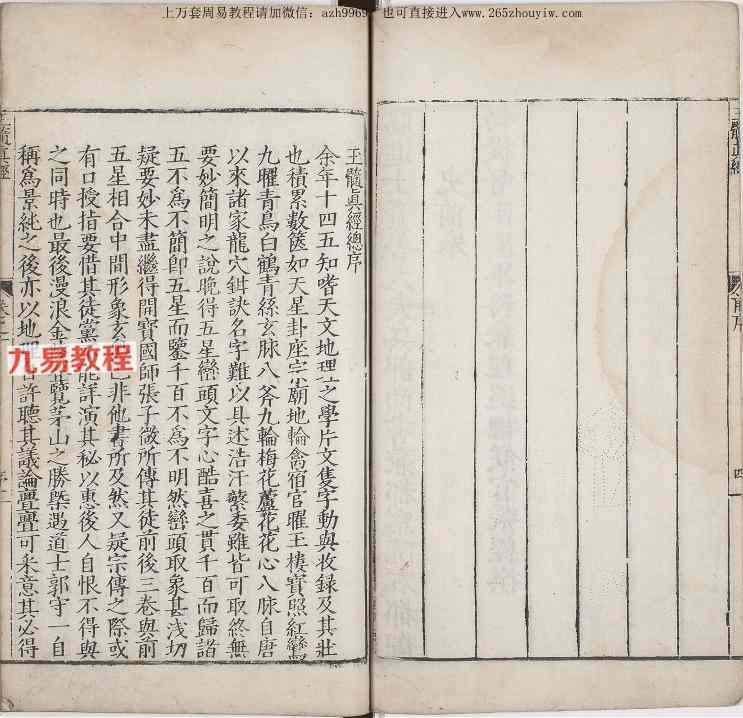 上万套周易教程请加微信：azh9969 也可直接进入www.265zhouyiw.com
玉髓真經總序
余年十四五知嗜天文地理之學片文隻字動與收録及其壯
也積累數篋如天星卦座宗廟地輪禽宿官曜玉樓寶照紅鸞
九曜青鳥白鶴青絲玄脉八斧九輪梅花蘆花花心八脉自唐
以來諸家龍穴鉗訣名字難以具述浩汗繁委雖皆可取終無
要妙簡明之說晚得五星巒頭文字心酷喜之貫千百而歸諸
五不爲不簡卽五星而鑒千百不爲不明然巒頭取象甚淺切
疑要妙未盡繼得開寶國師張子微所傳其徒前後三卷與前
五星相合中間形象玄 非他書所及然又疑宗傳之際或
有口授指要借其徒黨 能詳演其秘以惠後人自恨不得與
之同時也最後漫浪金 覽茅山之勝槩遇道士郭守一自
稱爲景純之後亦以地理 許聽其議論亹亹可采意其必得
九易教程
序
四